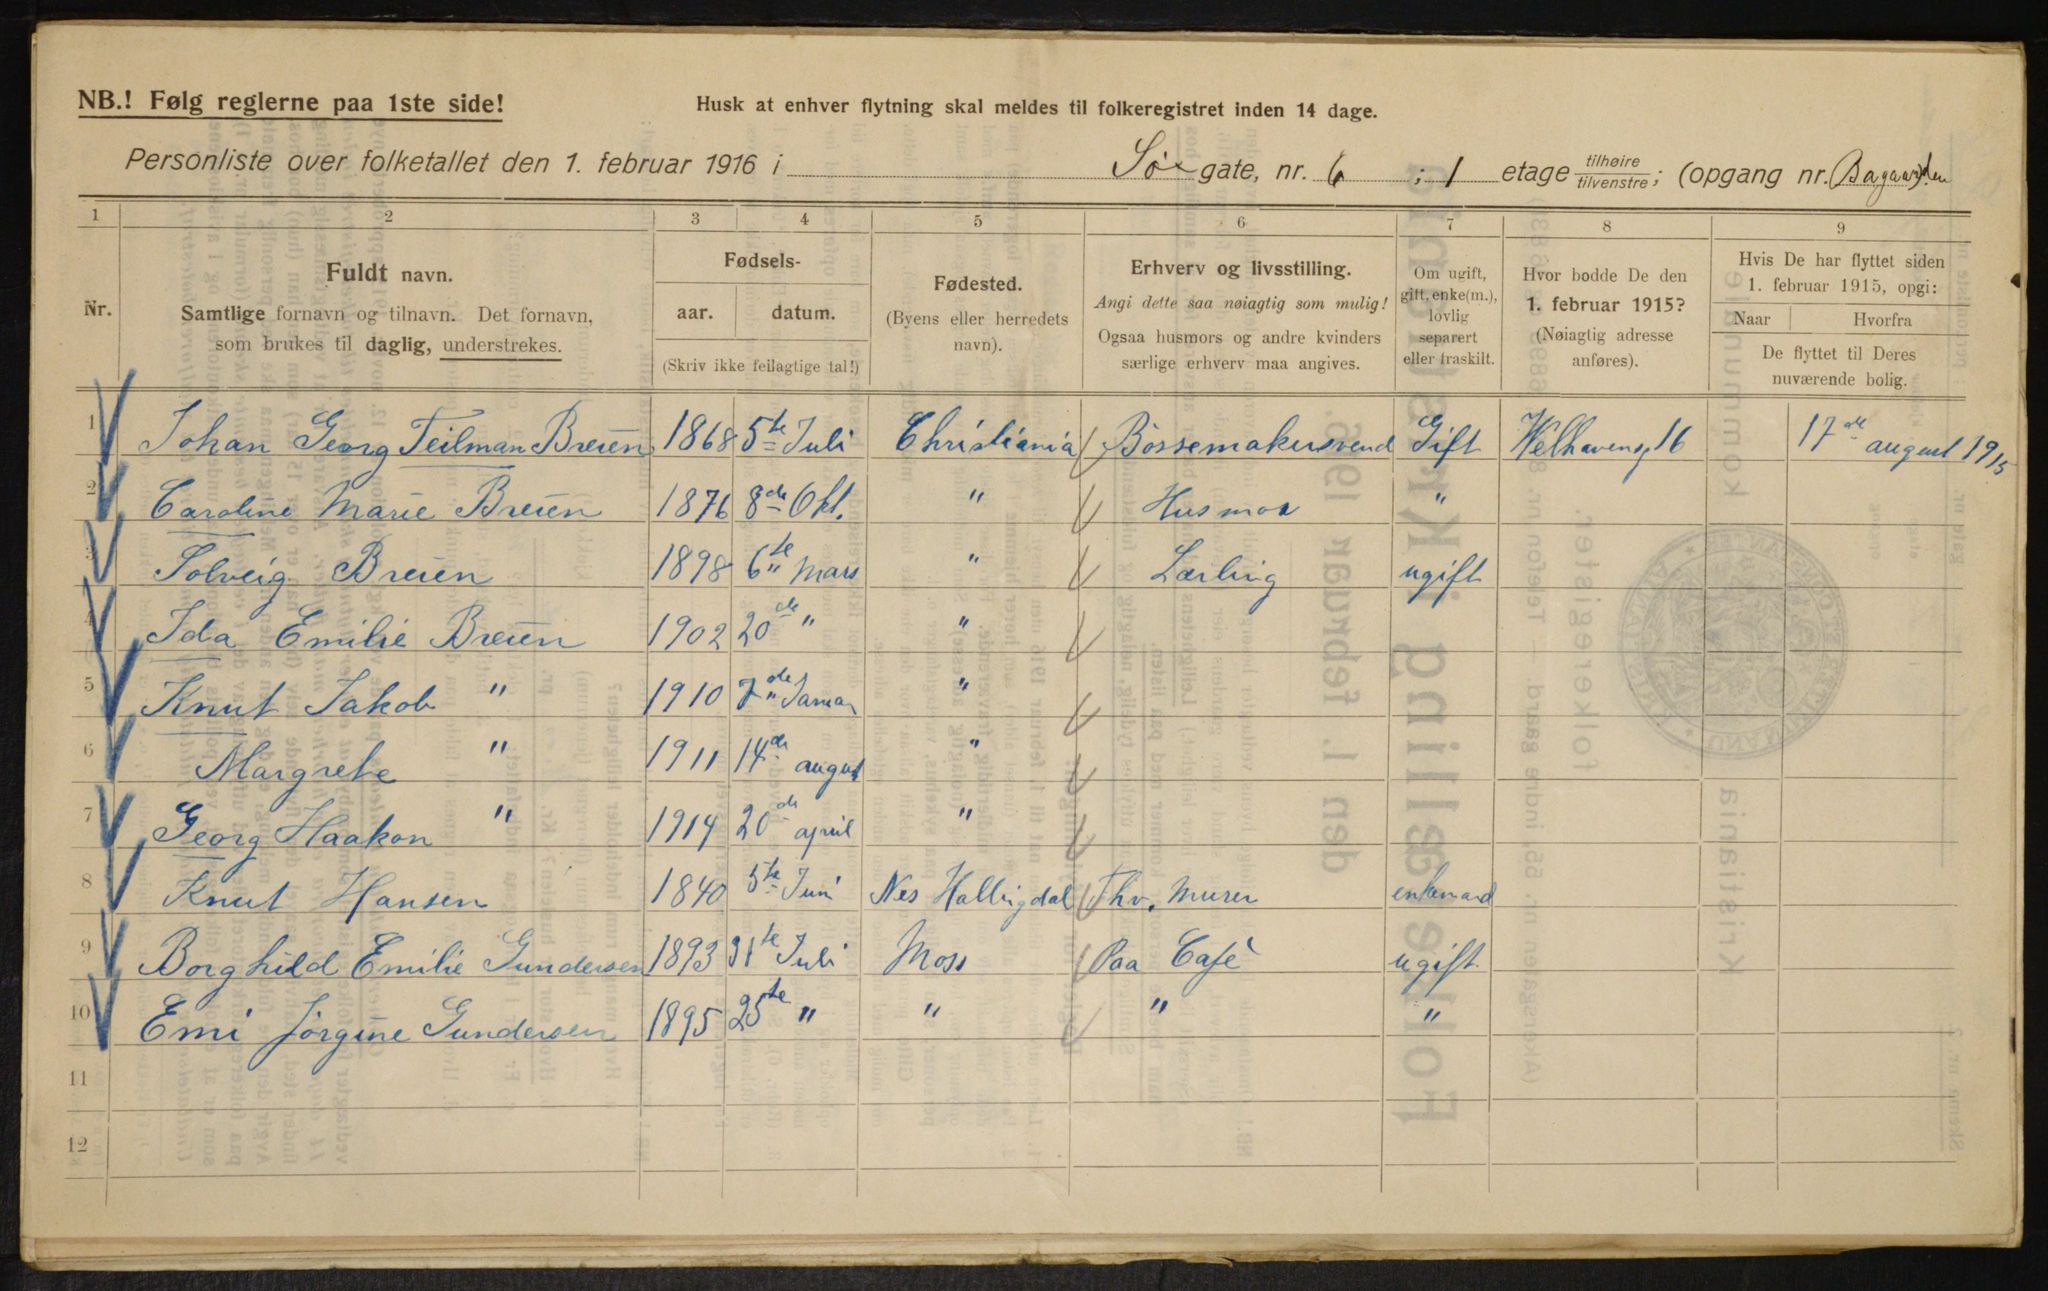 NB.! Følg reglerne paa 1ste side!
Husk at enhver flytning skal meldes til folkeregistret inden 14 dage.
Personliste over folketallet den 1. februar 1916 i Sø gate, nr. 6 ; 1 etage tilhøire tilvenstre ; (opgang nr. Bagaarden
1 2 3 4 5 6 7 8 9
Nr.
Fuldt navn.
Samtlige fornavn og tilnavn. Det fornavn,
som brukes til daglig, understrekes.
Fødsels-
aar. datum.
(Skriv ikke feilagtige tal!)
Fødested.
(Byens eller herredets
navn).
Erhverv og livsstilling.
Angi dette saa nøiagtig som mulig!
Ogsaa husmors og andre kvinders
særlige erhverv maa angives.
Om ugift,
gift, enke(m.),
lovlig
separert
eller fraskilt.
Hvor bodde De den
1. februar 1915?
(Nøiagtig adresse
anføres).
Hvis De har flyttet siden
1. februar 1915, opgi:
Naar Hvorfra
De flyttet til Deres
nuværende bolig.
1 Johan Georg Teilman Breien 1868 5te Juli Christiania Bössemakersvend Gift Welhavensg 16 17de august 1915
2 Caroline Marie Breien 1876 8de Okt. " Husmor "
3 Solveig Breien 1898 6te Mars " Lærling ugift
4 Ida Emilie Breien 1902 20de " "
5 Knut Jakob " 1910 7de Januar "
6 Margrete " 1911 14de august "
7 Georg Haakon " 1914 20de april "
8 Knut Hansen 1840 5te Juni Nes Hallingdal Fhv. Murer enkemand
9 Borghild Emilie Gundersen 1893 31te Juli Moss Paa Café ugift
10 Emi Jörgine Gundersen 1895 25te " " " "
11
12